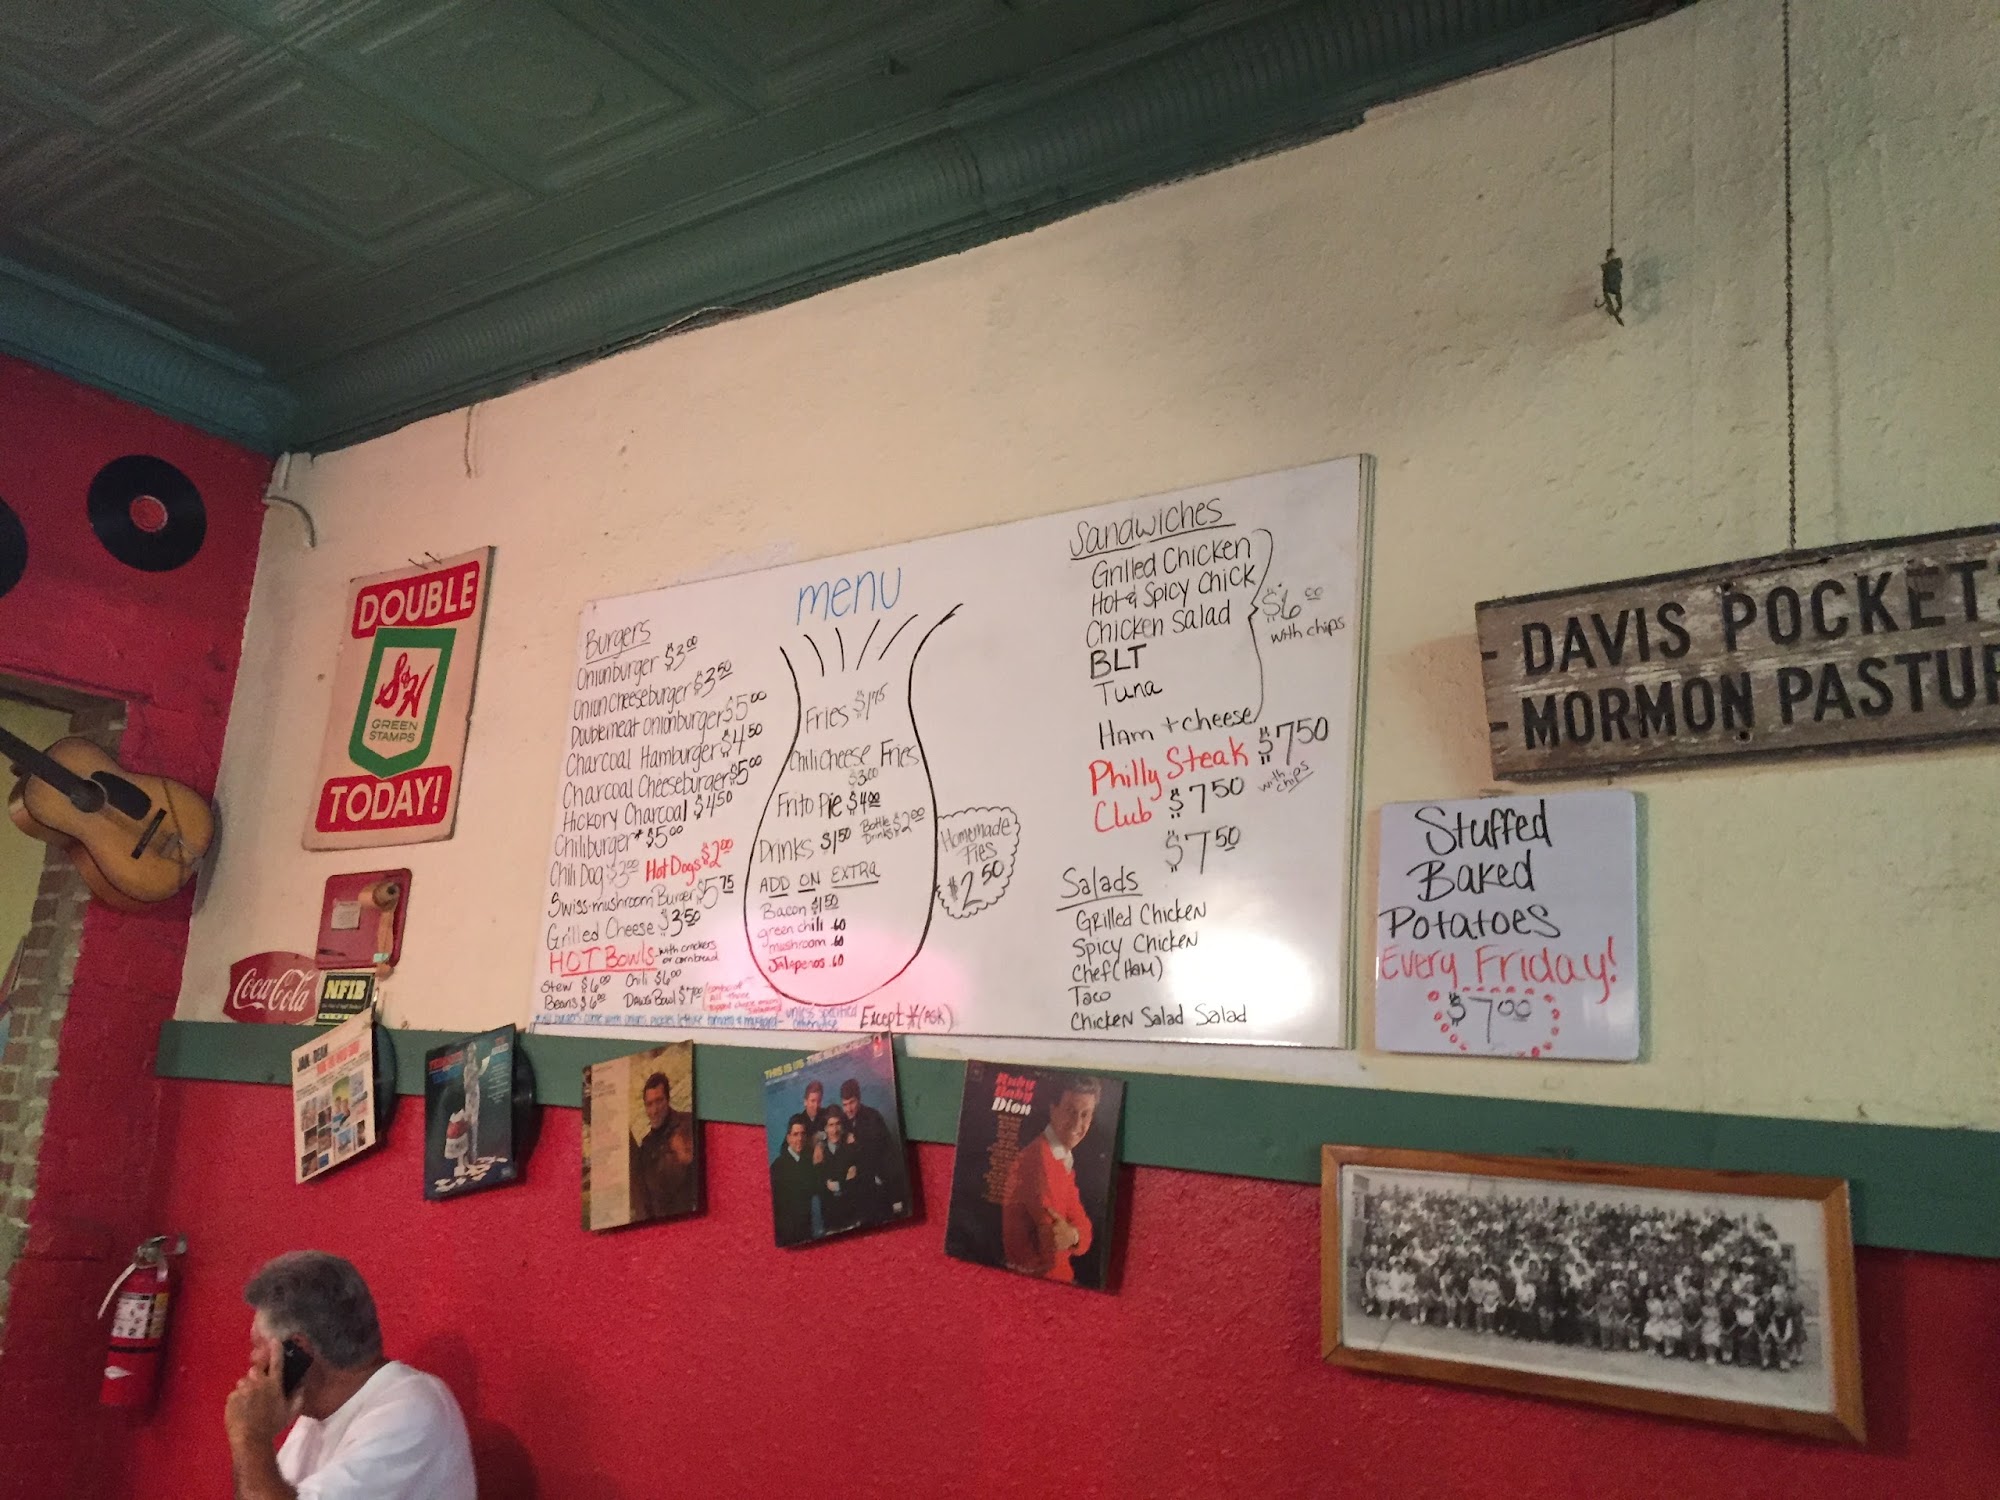 DOUBLE
S&H
GREEN
STAMPS
TODAY!
Coca-Cola
NFIB
menu
Burgers
Onionburger $3.00
Onion Cheeseburger $3.50
Doublemeat Onionburger $5.00
Charcoal Hamburger $4.50
Charcoal Cheeseburger $5.00
Hickory Charcoal $4.50
Chiliburger* $5.00
Chili Dog $3.00 Hot Dogs $2.00
Swiss-mushroom Burger $5.75
Grilled Cheese $3.50
HOT BOWLS - with crackers
or cornbread
Stew $6.00 Chili $6.00
Beans $6.00 Davis Bowl $7.00
unless specified
otherwise
Except *(ASK)
Fries $1.75
Chili Cheese Fries
$3.00
Frito Pie $4.00
Drinks $1.50 Bottle Drinks $2.00
ADD ON EXTRA
Bacon $1.50
green chili .60
mushroom .60
Jalapenos .60
Homemade
Pies
$2.50
Sandwiches
Grilled Chicken
Hot & Spicy Chick
Chicken Salad
BLT
Tuna
Ham + cheese
$6.00
with chips
Philly Steak $7.50
Club $7.50 with chips
$7.50
Salads
Grilled Chicken
Spicy Chicken
Chef (Ham)
Taco
Chicken Salad Salad
- DAVIS POCKET
- MORMON PASTUR
Stuffed
Baked
Potatoes
Every Friday!
$7.00
JAN & DEAN
THIS IS US THE SEARCHERS
Ruby
Baby
Dion